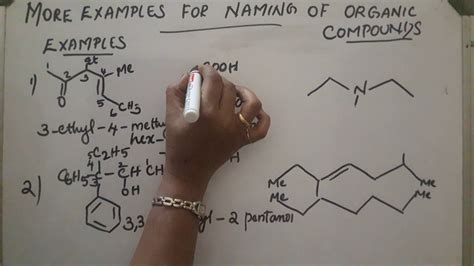 MORE EXAMPLES FOR NAMING OF ORGANIC
COMPOUNDS
EXAMPLES
1) 1 2 3 4 Et Me
O 5
6 CH3
OOH
N
3-ethyl-4-meth
hex-
OH
2) C2H5
C6H5 3 C - CH CH
OH
3,3 yl-2 pentanol
Me Me
Me Me